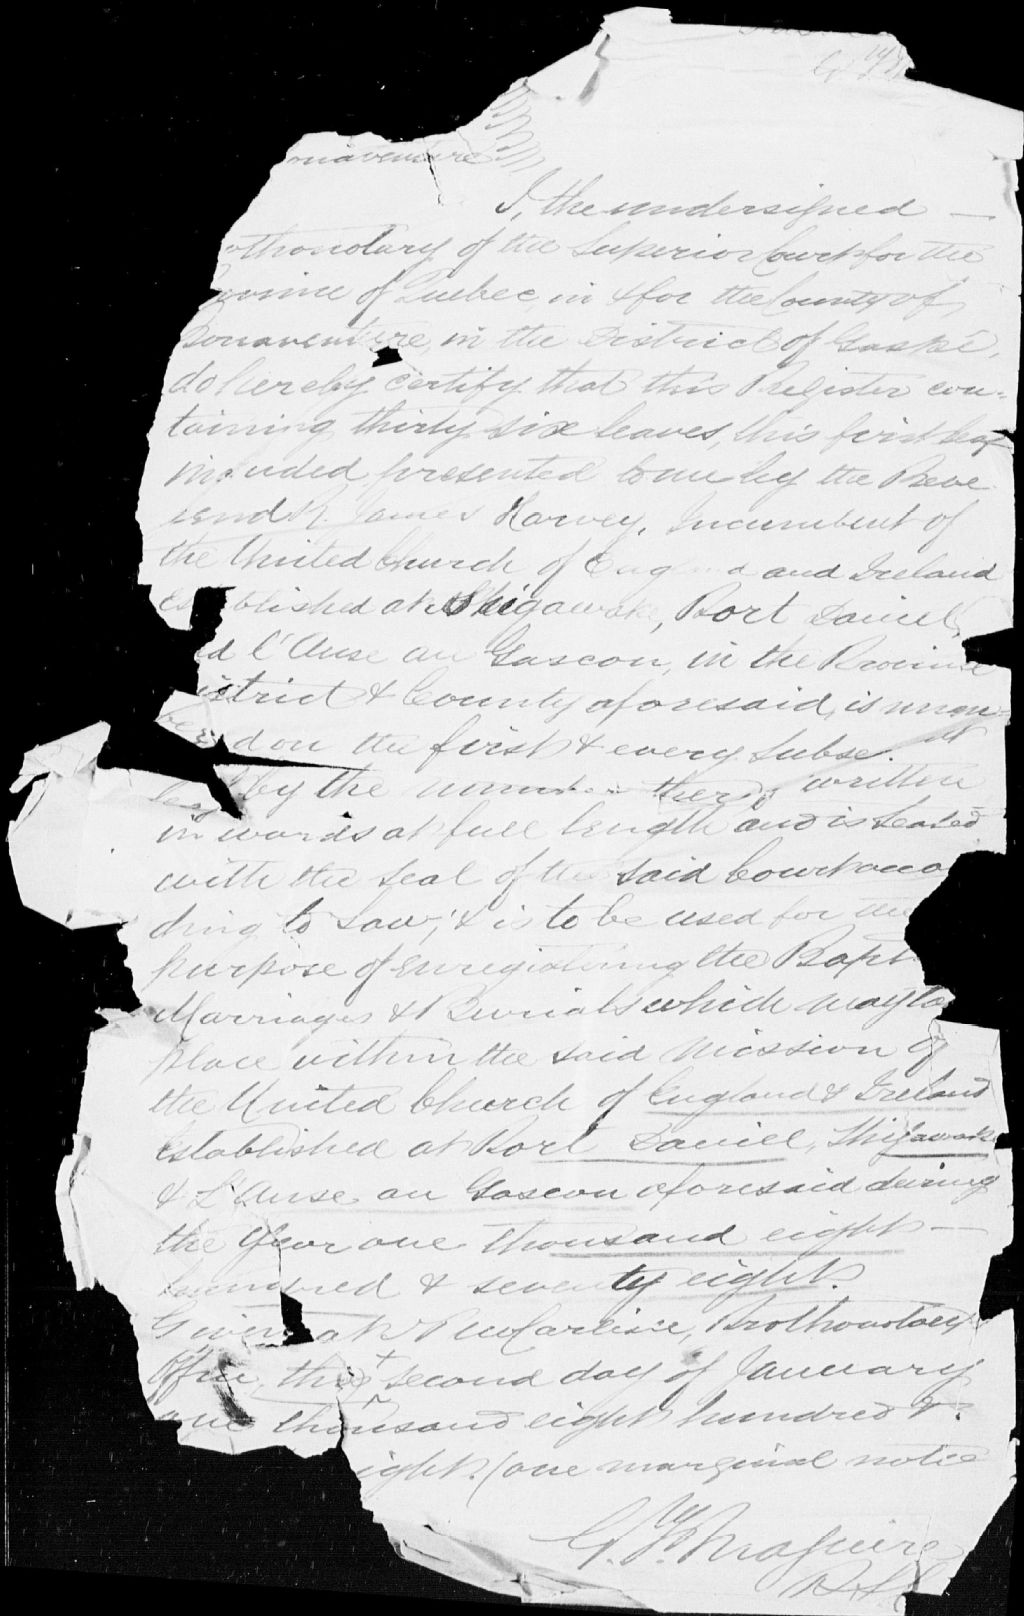 onaventure
I, the undersigned —
othonotary of the Superior Court for the
ovince of Quebec, in & for the County of
Bonaventure, in the District of Gaspé,
do hereby certify that this Register con-
taining thirty six leaves, this first leaf
included presented to me by the Reve
rend R. James Harvey, Incumbent of
the United Church of England and Ireland
es blished at Shigawake, Port Daniel,
d l'Anse au Gascon, in the Province
istrict & County aforesaid, is num
be d on the first & every subse
leaf by the number thereof written
in words at full length and is sealed
with the seal of the said Court acco
ding to Law, & is to be used for the
purpose of enregistering the Bapt
Marriages & Burials which may ta
place within the said Mission of
the United Church of England & Ireland
Established at Port Daniel, Shigawake
& L'Anse au Gascon aforesaid during
the Year one thousand eight —
hundred & seventy eight.
Given at New Carlisle, Prothonotary
Office, this second day of January
one thousand eight hundred &
ight. (one marginal notice
G. W. Maguire